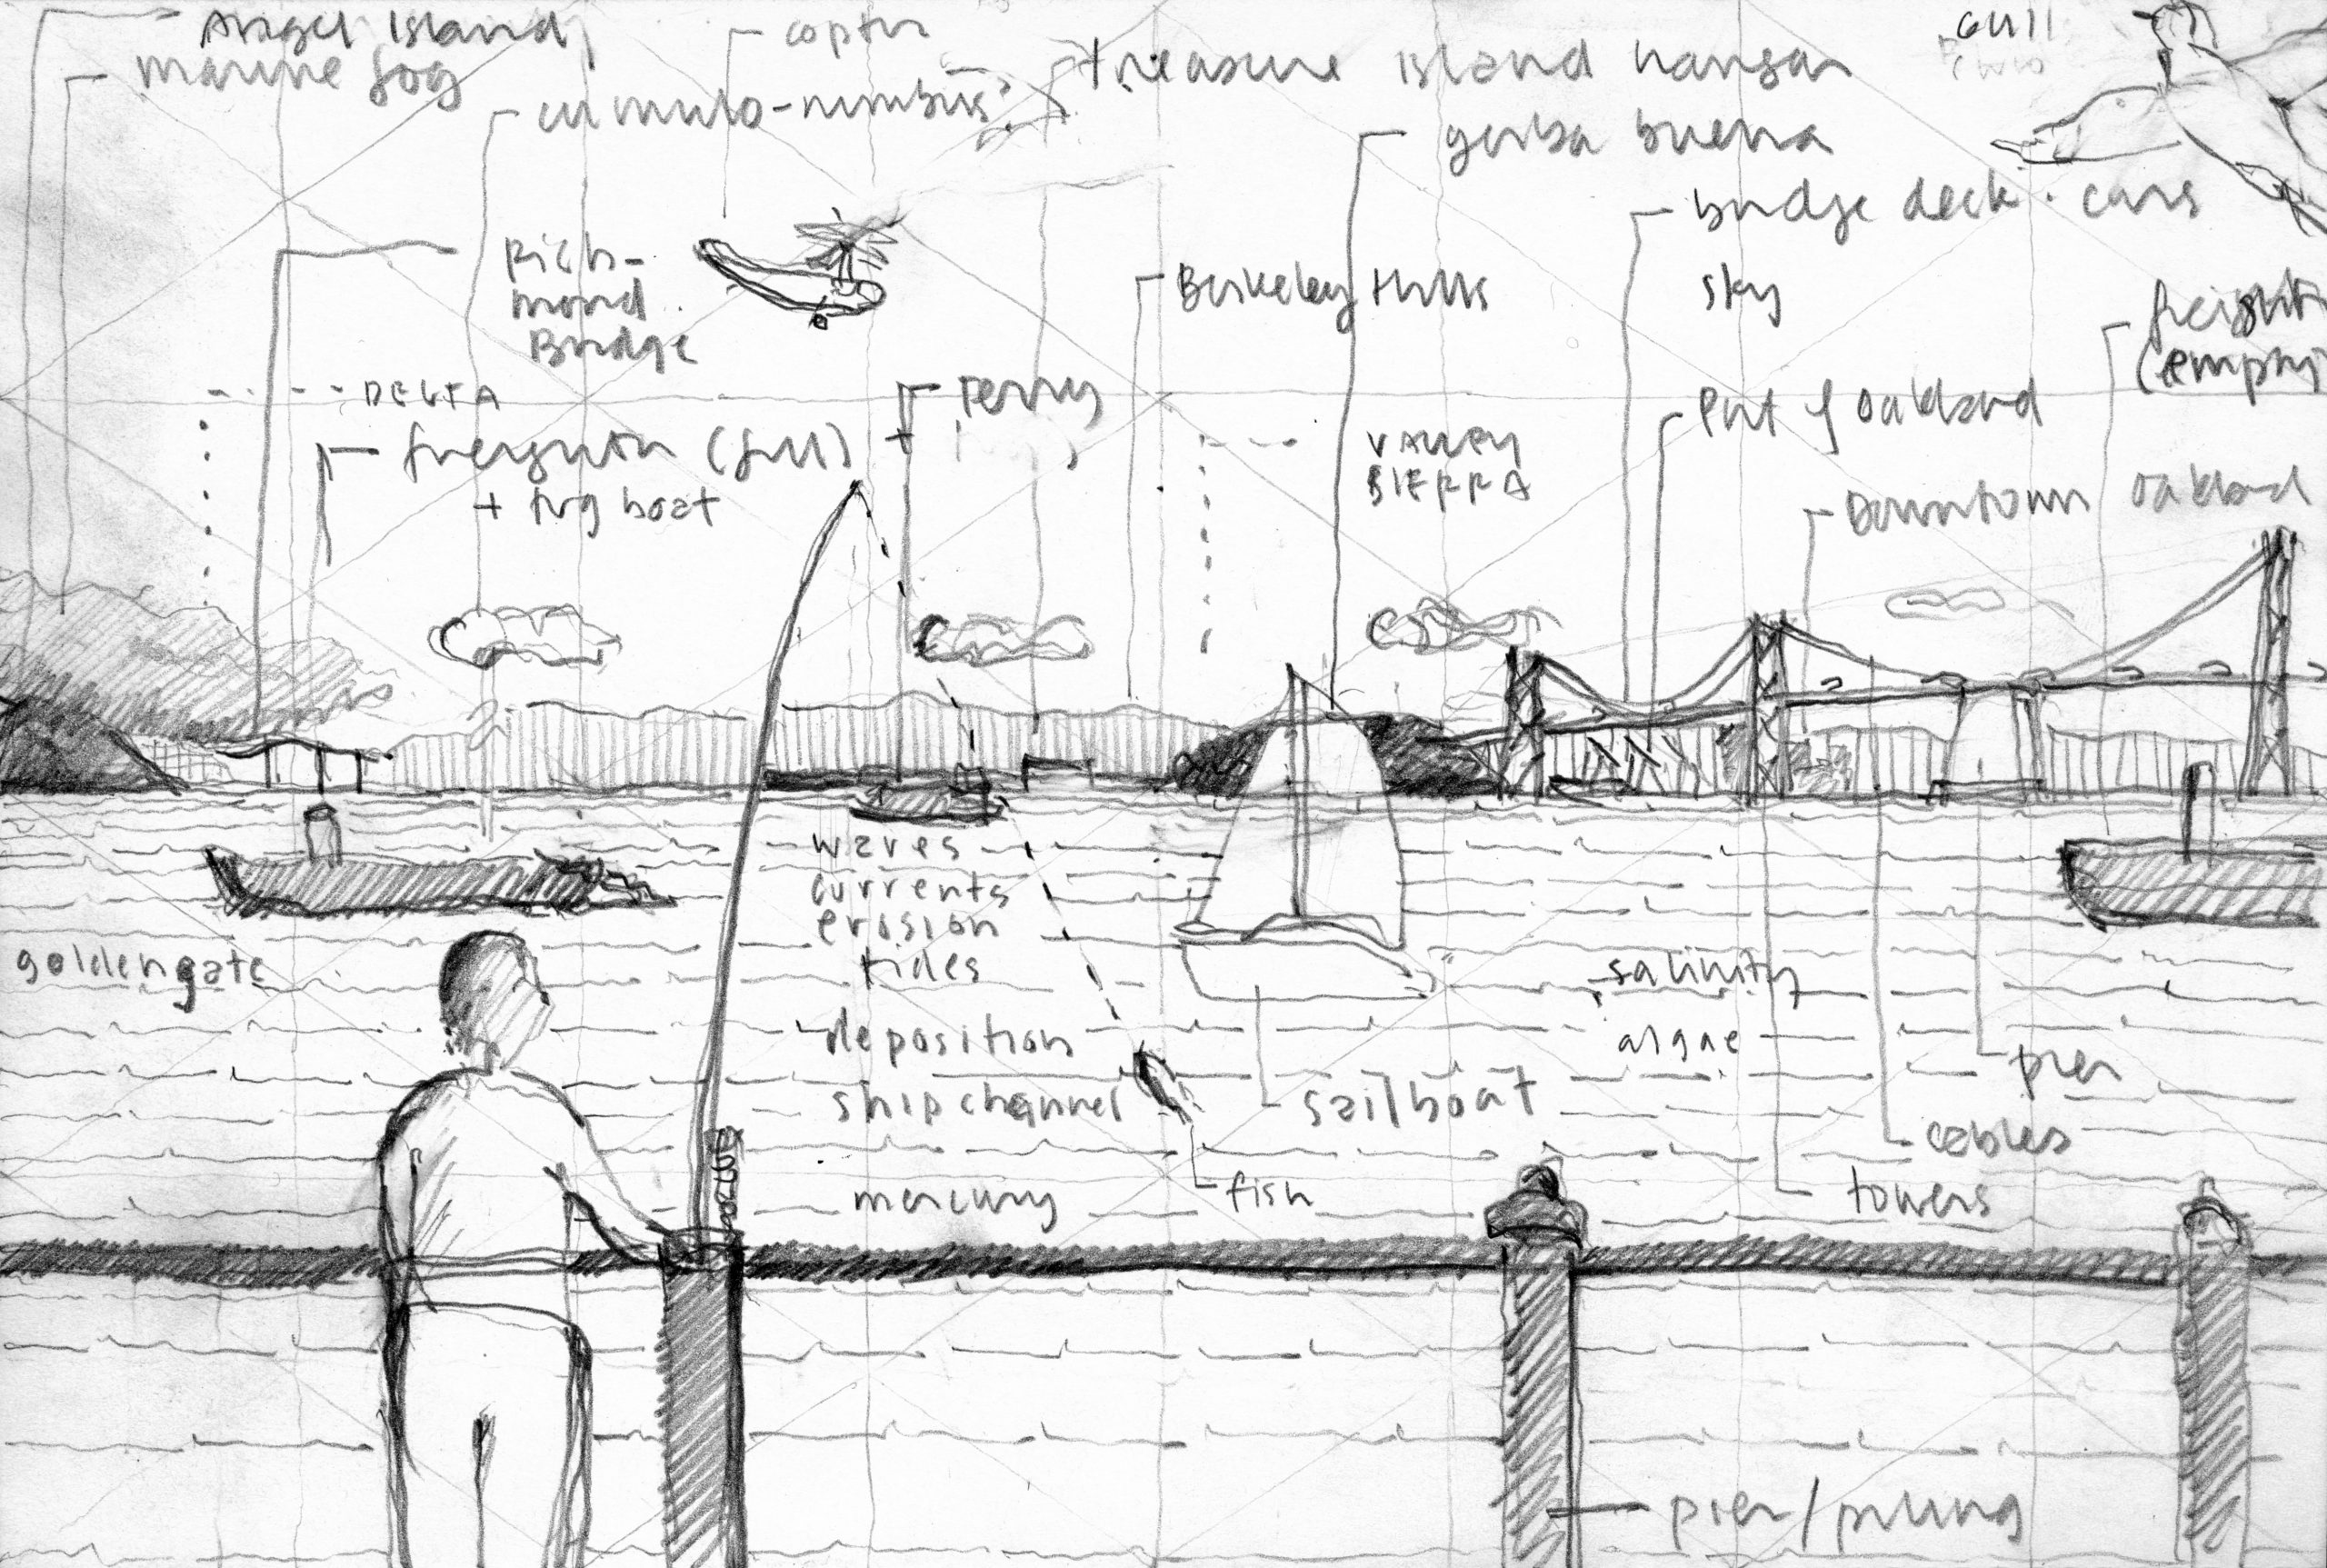 Angel Island
marine fog
copter
cumulo-nimbus
treasure island hangar
gull
yerba buena
bridge deck · cars
sky
Rich-
mond
Bridge
Berkeley Hills
freight
(empty)
DELTA
Ferry
(full) +
+ tug boat
VALLEY
SIERRA
Port of Oakland
Downtown Oakland
waves
currents
erosion
tides
goldengate
salinity
deposition
algae
pier
ship channel
sailboat
cables
mercury
fish
towers
pier/piling